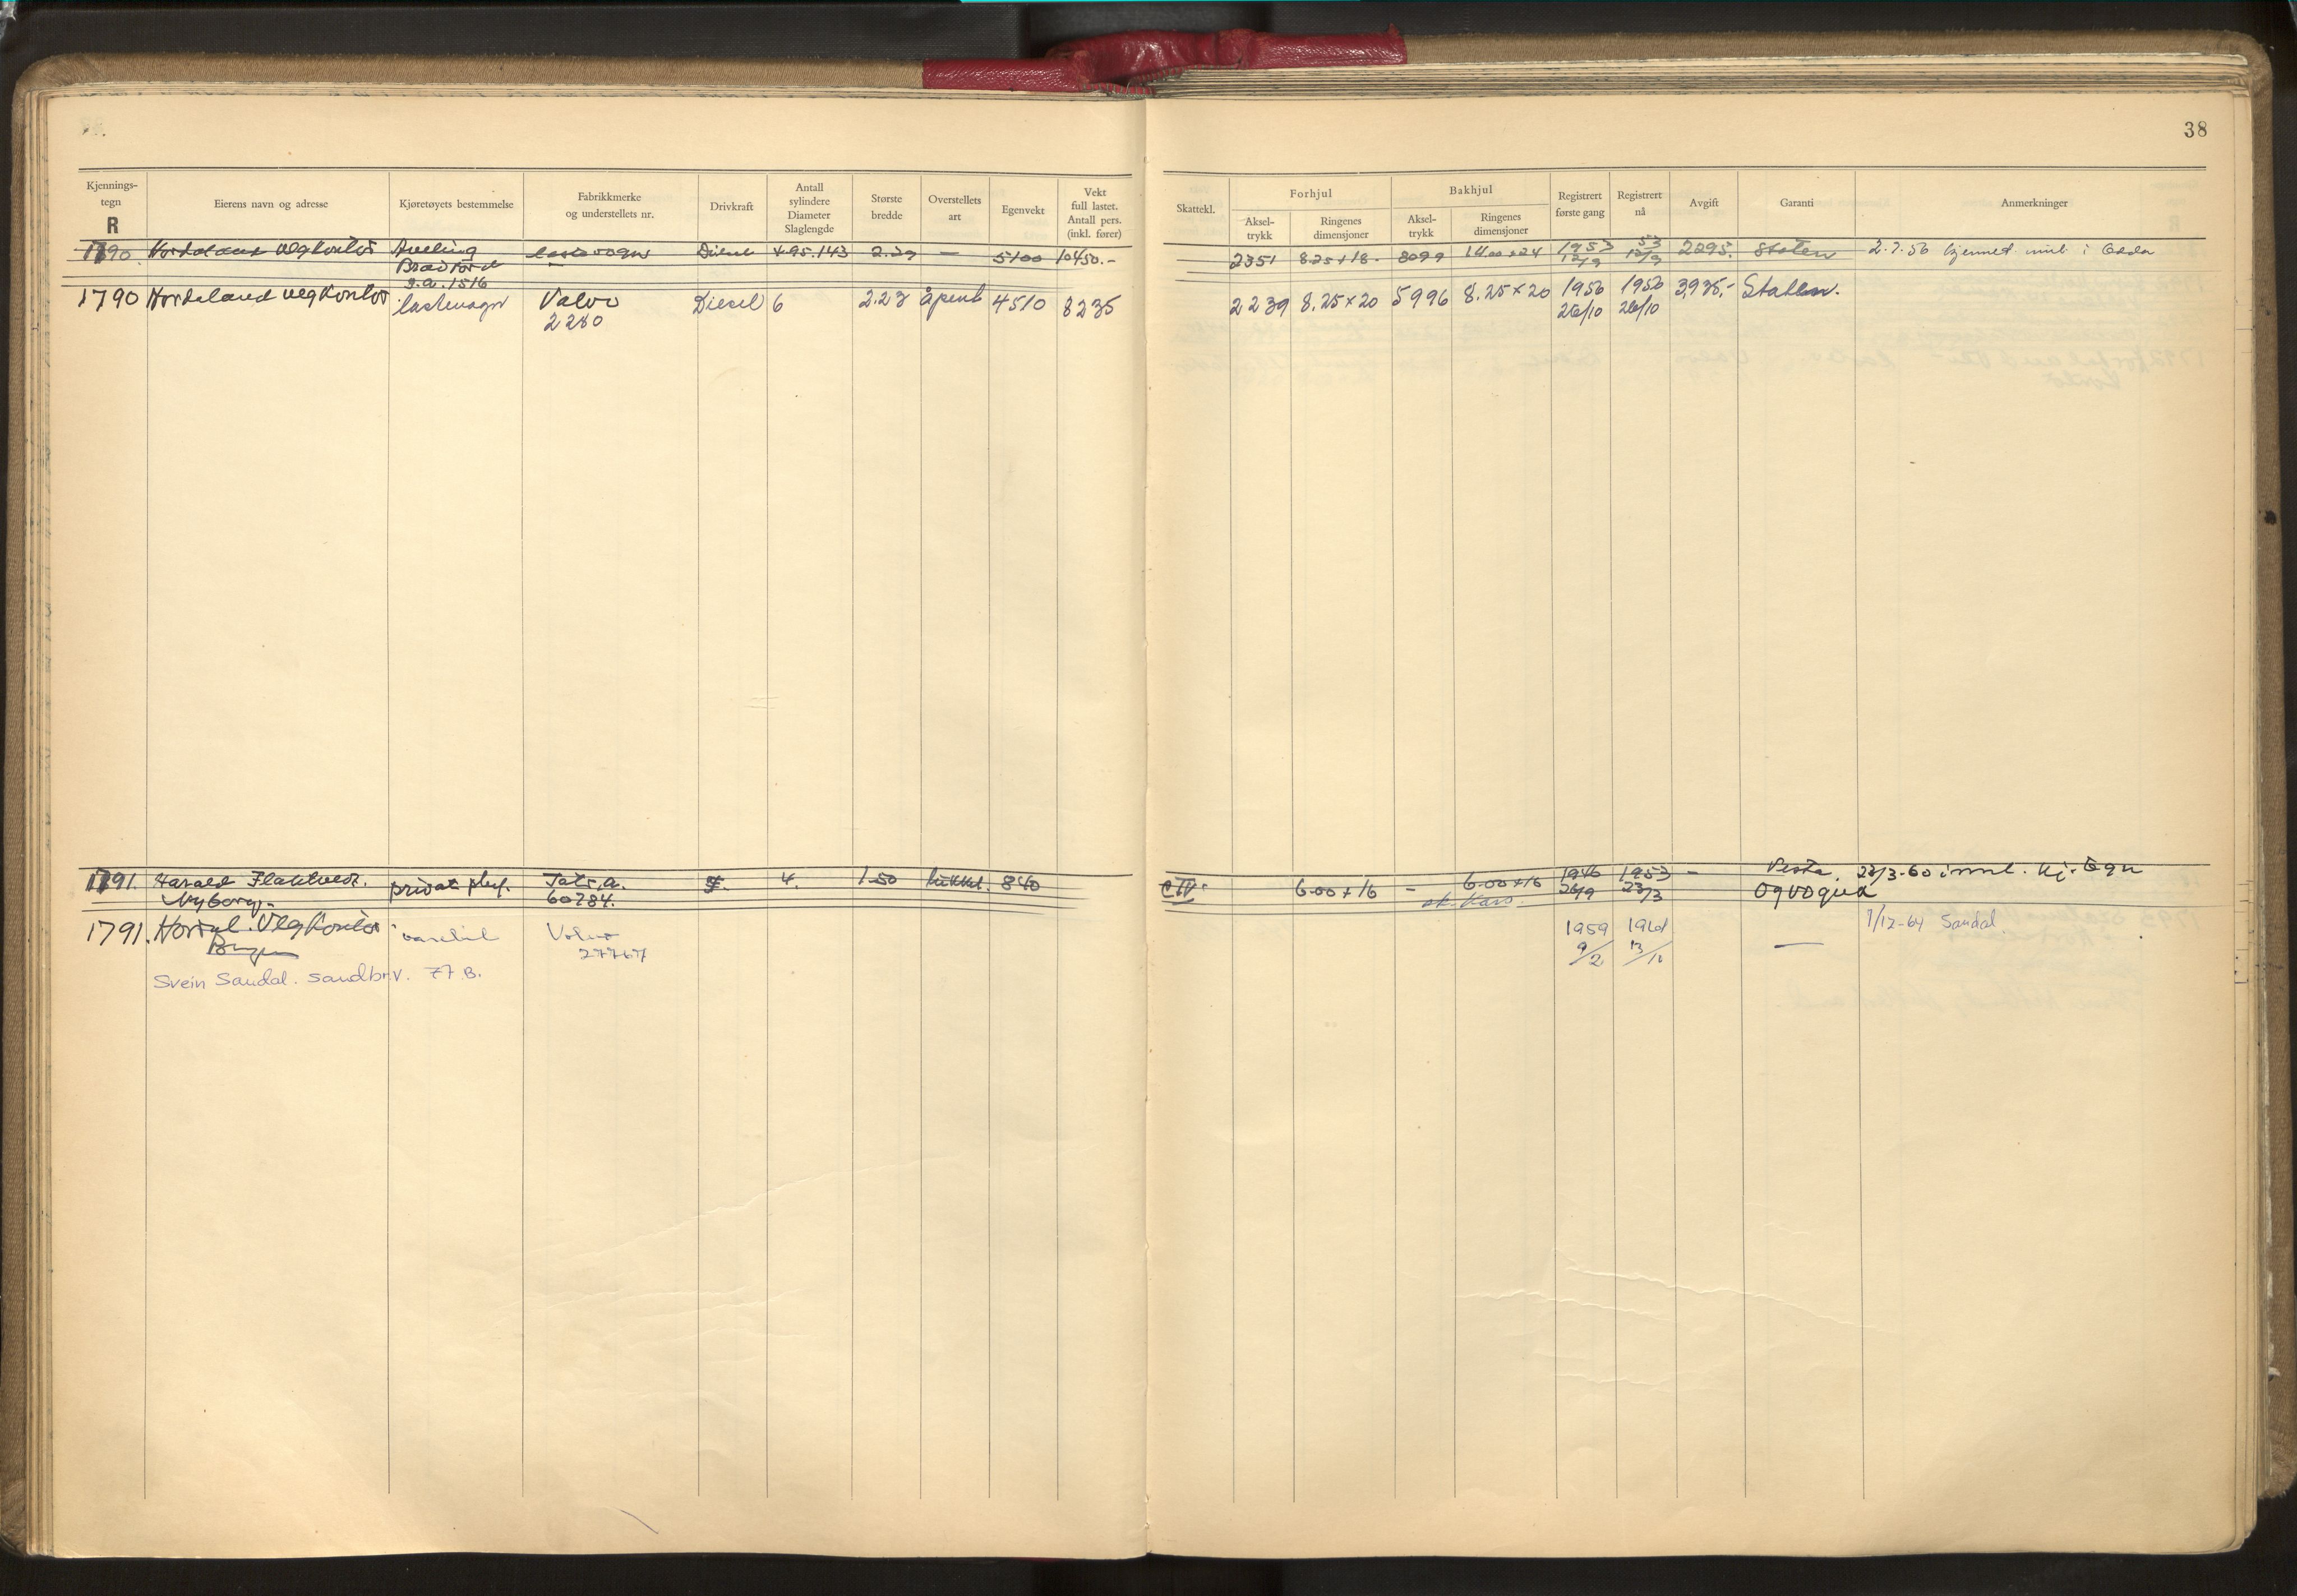 38
Kjennings-
tegn
R
Eierens navn og adresse
Kjøretøyets bestemmelse
Fabrikkmerke
og understellets nr.
Drivkraft
Antall
sylindere
Diameter
Slaglengde
Største
bredde
Overstellets
art
Egenvekt
Vekt
full lastet.
Antall pers.
(inkl. fører)
Skattekl.
Forhjul
Aksel-
trykk
Ringenes
dimensjoner
Bakhjul
Aksel-
trykk
Ringenes
dimensjoner
Registrert
første gang
Registrert
nå
Avgift
Garanti
Anmerkninger
1790 Hordaland Vegkontor Aveling Diesel 4-95.143 2.29 — 5100 10450.- 2351 8.25+18- 8099 14.00+24 1953 53 2295. Staten 2.7.56 kjennet innl i Odda
12/9 12/9
1516
1790 Hordaland Vegkontor lastevogn Volvo Diesel 6 2.23 åpent 4510 8235 2239 8.25×20 5996 8.25×20 1956 1956 3,935,- Staten.
2280 26/10 26/10
1791. Harald privat Tatra. 4. 1.50 lukket. 840 6.00+16 - 6.00+16 1946 1953 - Vesta. 23/3-60 innl. kj. tegn
Nyborg. 60784. 26/9 23/3 og vogna
1791. Hordal. Vegkontor varebil Volvo 1959 1961 — 1/12-64 Sandal.
Bergen 27767 9/2
Svein Sandal. Sandbrv. 77 B.